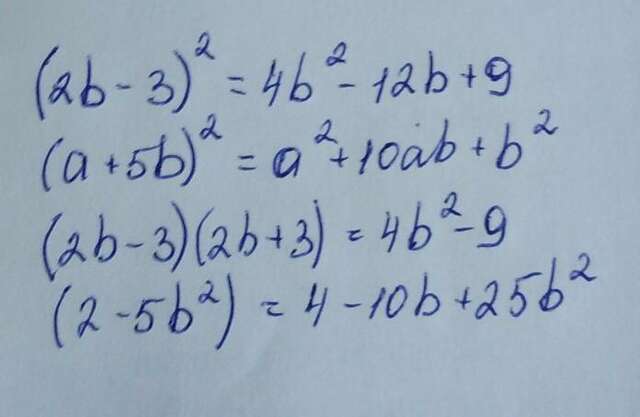 (2b - 3)² = 4b² - 12b + 9
(a + 5b)² = a² + 10ab + b²
(2b - 3)(2b + 3) = 4b² - 9
(2 - 5b²) = 4 - 10b + 25b²